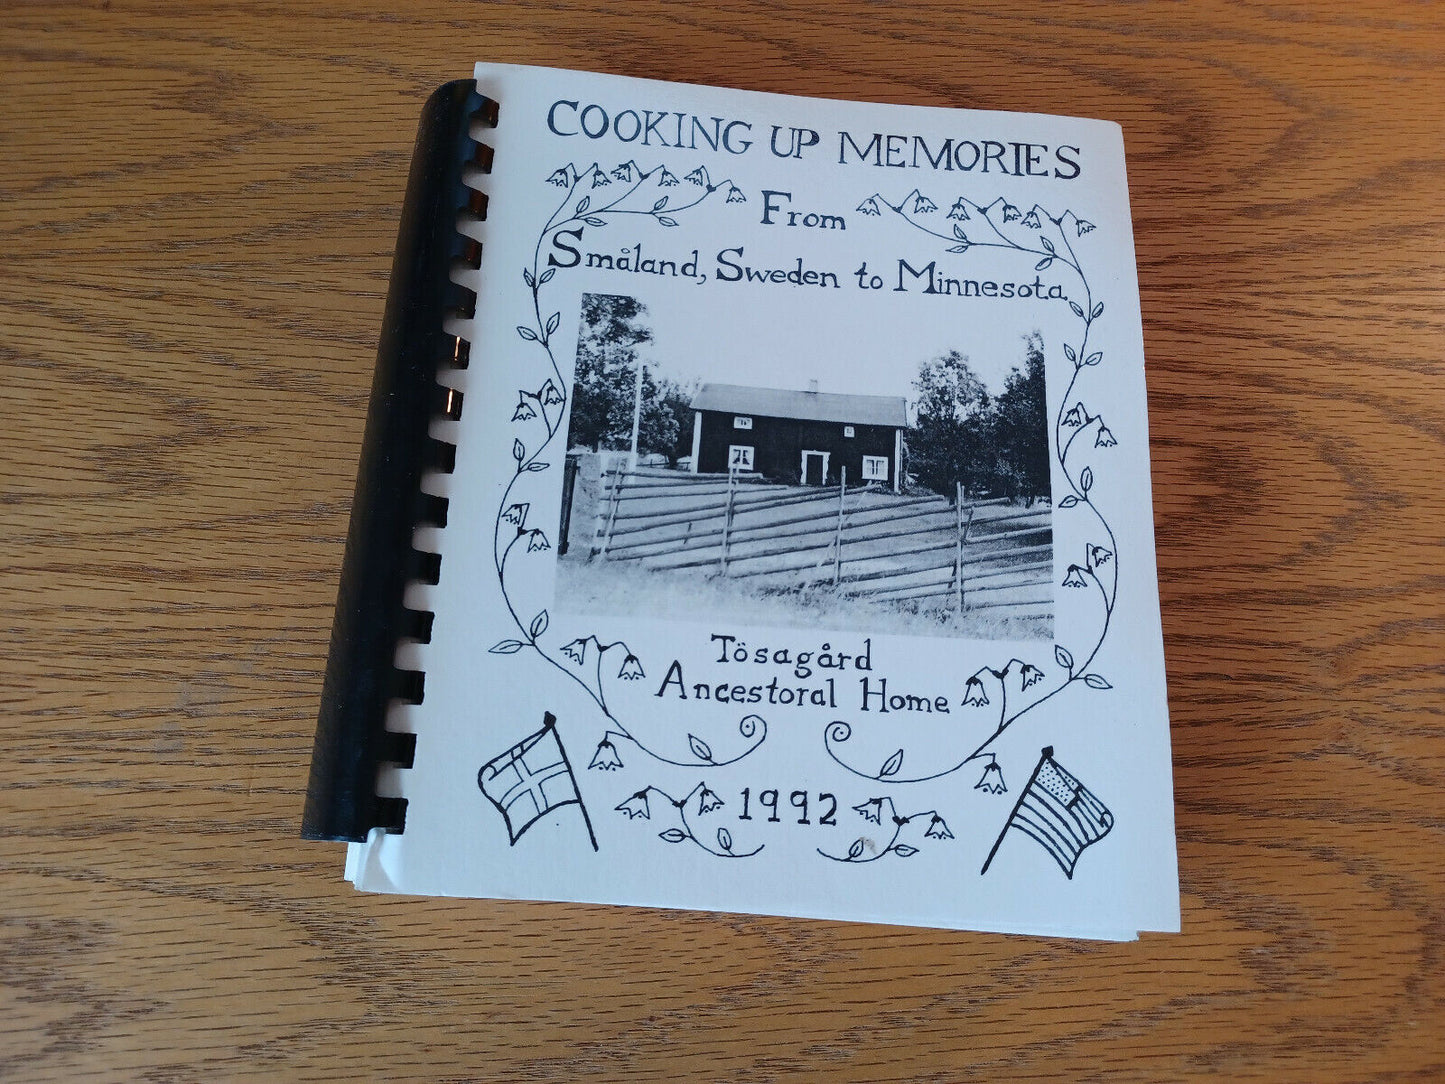 COOKING UP MEMORIES
From
Småland, Sweden to Minnesota
Tösagård
Ancestoral Home
1992